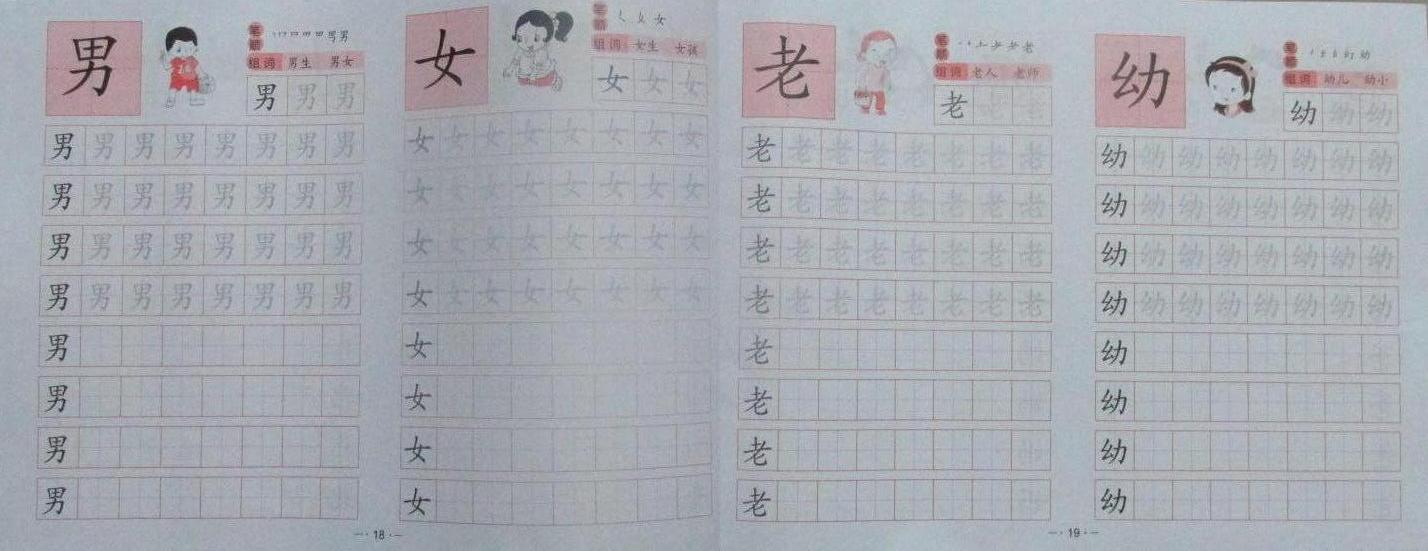 男
笔顺
组词 男生 男女
男 男 男
男 男 男 男 男 男 男 男
男 男 男 男 男 男 男 男
男 男 男 男 男 男 男 男
男 男 男 男 男 男 男 男
男
男
男
男
女
笔顺 女
组词 女生 女孩
女 女 女
女 女 女 女 女 女 女 女
女 女 女 女 女 女 女 女
女 女 女 女 女 女 女 女
女 女 女 女 女 女 女 女
女
女
女
女
— · 18 · —
老
笔顺 老
组词 老人 老师
老 老 老
老 老 老 老 老 老 老 老
老 老 老 老 老 老 老 老
老 老 老 老 老 老 老 老
老 老 老 老 老 老 老 老
老
老
老
老
幼
笔顺 幼
组词 幼儿 幼小
幼 幼 幼
幼 幼 幼 幼 幼 幼 幼 幼
幼 幼 幼 幼 幼 幼 幼 幼
幼 幼 幼 幼 幼 幼 幼 幼
幼 幼 幼 幼 幼 幼 幼 幼
幼
幼
幼
幼
— · 19 · —